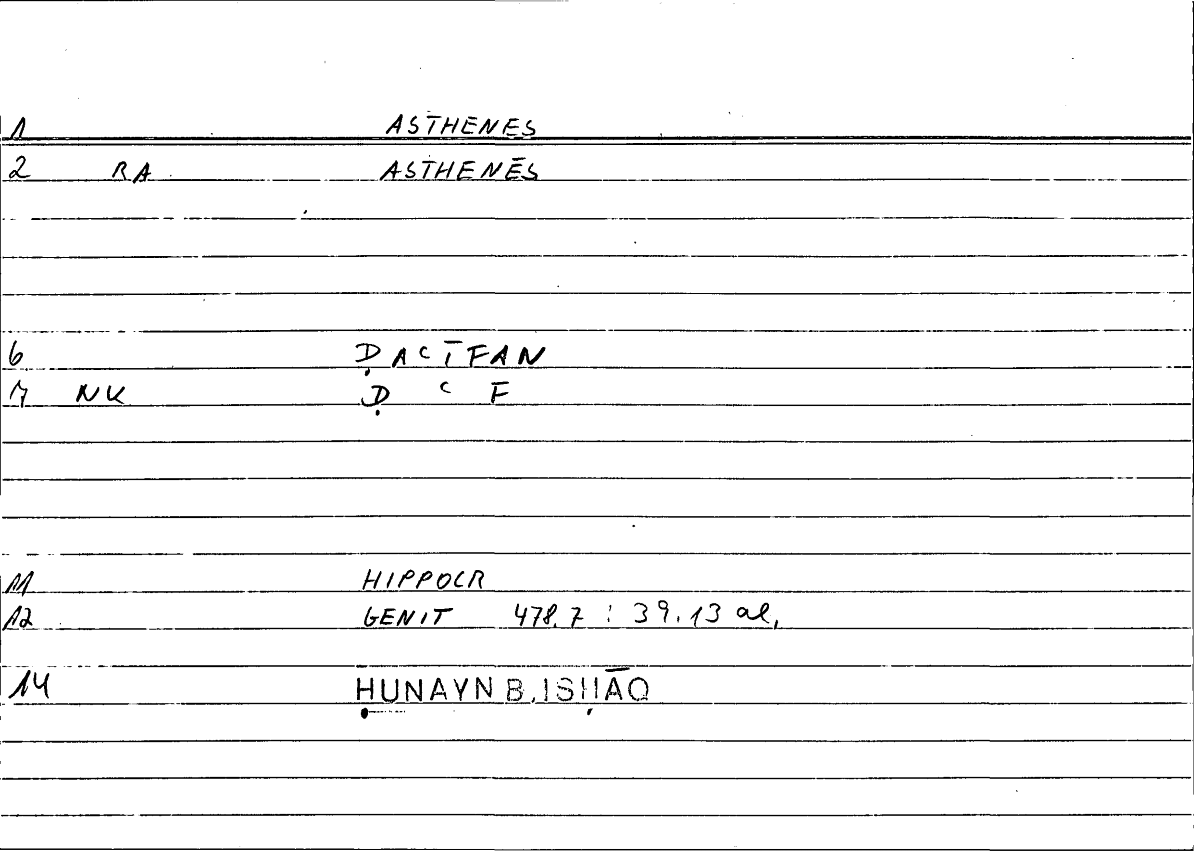 1 ASTHENES
2 RA ASTHENĒS
6 ḌAꜤĪFAN
7 NK Ḍ Ꜥ F
11 HIPPOCR
12 GENIT 478.7 : 39.13 al,
14 ḤUNAYN B. ISḤĀQ